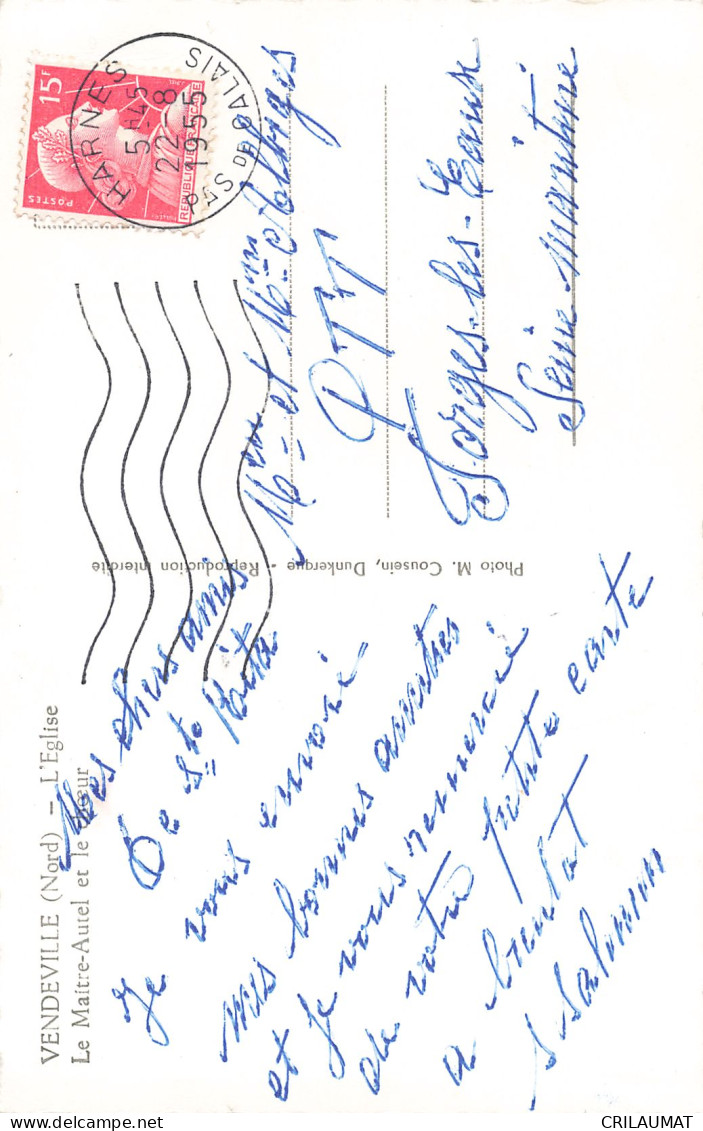 VENDEVILLE (Nord) — L'Eglise
Le Maître-Autel et le Chœur
Mes chers amis
De Ste Rita
Je vous envoie
mes bonnes amitiés
et je vous remercie
de votre petite carte
a bientot
Photo M. Cousein, Dunkerque - Reproduction interdite
15F
POSTES
REPUBLIQUE FRANÇAISE
HARNES
5 H 45
22 - 8
1955
PAS DE CALAIS
et Mme
PTT
Forges-les-Eaux
Seine-maritime
CRILAUMAT